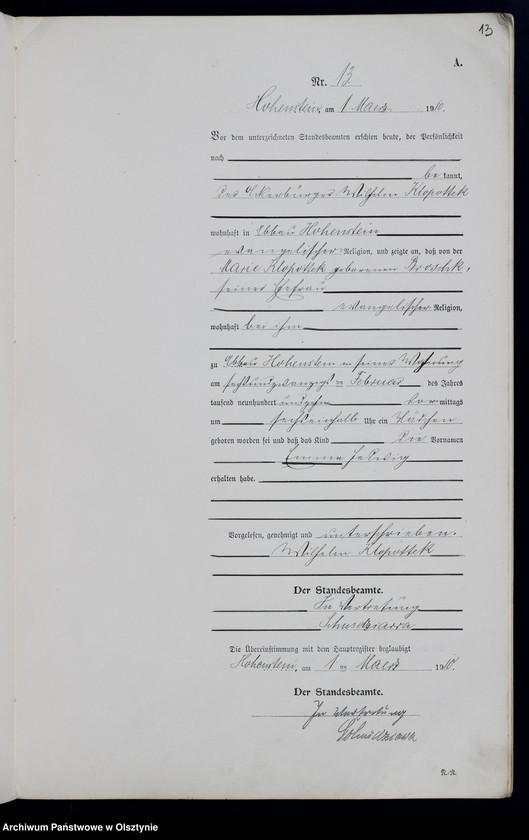 13
A.
Nr. 13
Hohenstein, am 1 Maerz 1910.
Vor dem unterzeichneten Standesbeamten erschien heute, der Persönlichkeit
nach
be kannt,
der Wilhelm Klopottek
wohnhaft in Abbau Hohenstein
evangelischer Religion, und zeigte an, daß von der
Marie Klopottek geborenen
seiner Ehefrau
evangelischer Religion,
wohnhaft bei ihm
zu Abbau Hohenstein in seiner Wohnung
am sechsundzwanzigsten Februar des Jahres
tausend neunhundert und zehn vor mittags
um Uhr ein Mädchen
geboren worden sei und daß das Kind die Vornamen
Emma Hedwig
erhalten habe.
Vorgelesen, genehmigt und unterschrieben.
Wilhelm Klopottek
Der Standesbeamte.
In Vertretung
Die Übereinstimmung mit dem Hauptregister beglaubigt
Hohenstein, am 1 ten Maerz 1910.
Der Standesbeamte.
In Vertretung
Archiwum Państwowe w Olsztynie